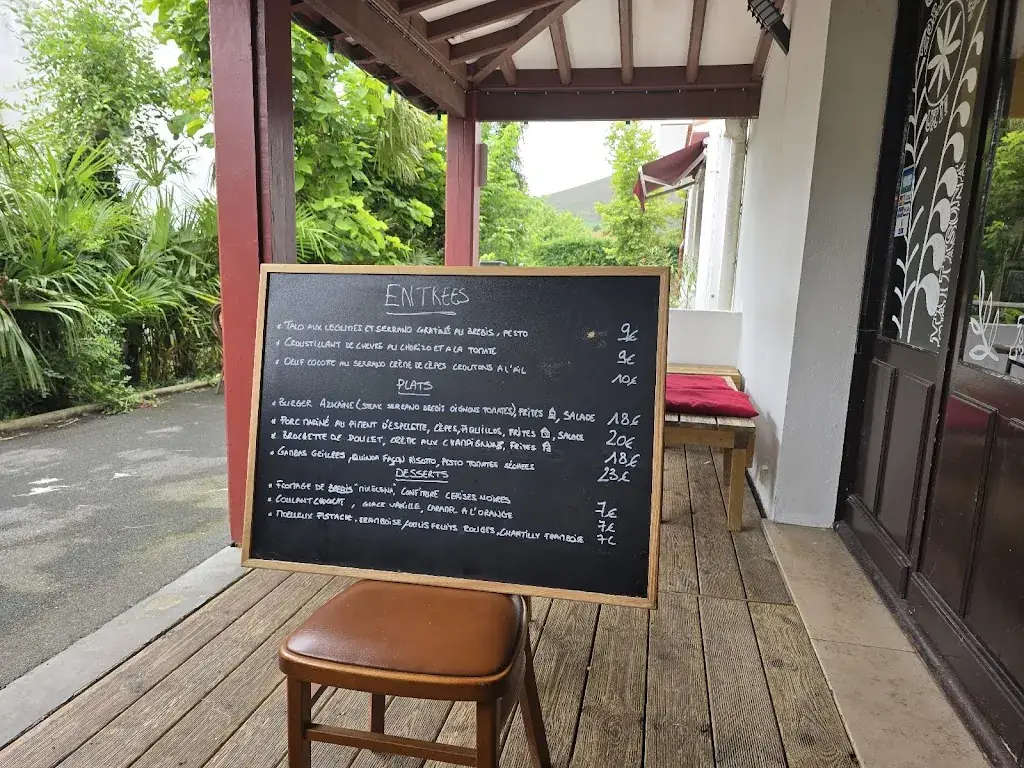 ENTREES
• TALO AUX LEGUMES ET SERRANO GRATINÉ AU BREBIS, PESTO 9€
• CROUSTILLANT DE CHEVRE AU CHORIZO ET A LA TOMATE 9€
• OEUF COCOTTE AU SERRANO CRÈME DE CÈPES CROUTONS A L'AIL 10€
PLATS
• BURGER AZKAINE (STEAK SERRANO BREBIS OIGNONS TOMATES), FRITES, SALADE 18€
• PORC MARINÉ AU PIMENT D'ESPELETTE, CÈPES, PIQUILLOS, FRITES, SALADE 20€
• BROCHETTE DE POULET, CRÈME AUX CHAMPIGNONS, FRITES 18€
• GAMBAS GRILLÉES, QUINOA FAÇON RISOTTO, PESTO TOMATES SÉCHÉES 23€
DESSERTS
• FROMAGE DE BREBIS, CONFITURE CERISES NOIRES 7€
• COULANT CHOCOLAT, GLACE VANILLE, CARAMEL A L'ORANGE 7€
• MOELLEUX PISTACHE, FRAMBOISE, COULIS FRUITS ROUGES, CHANTILLY FRAMBOISE 7€